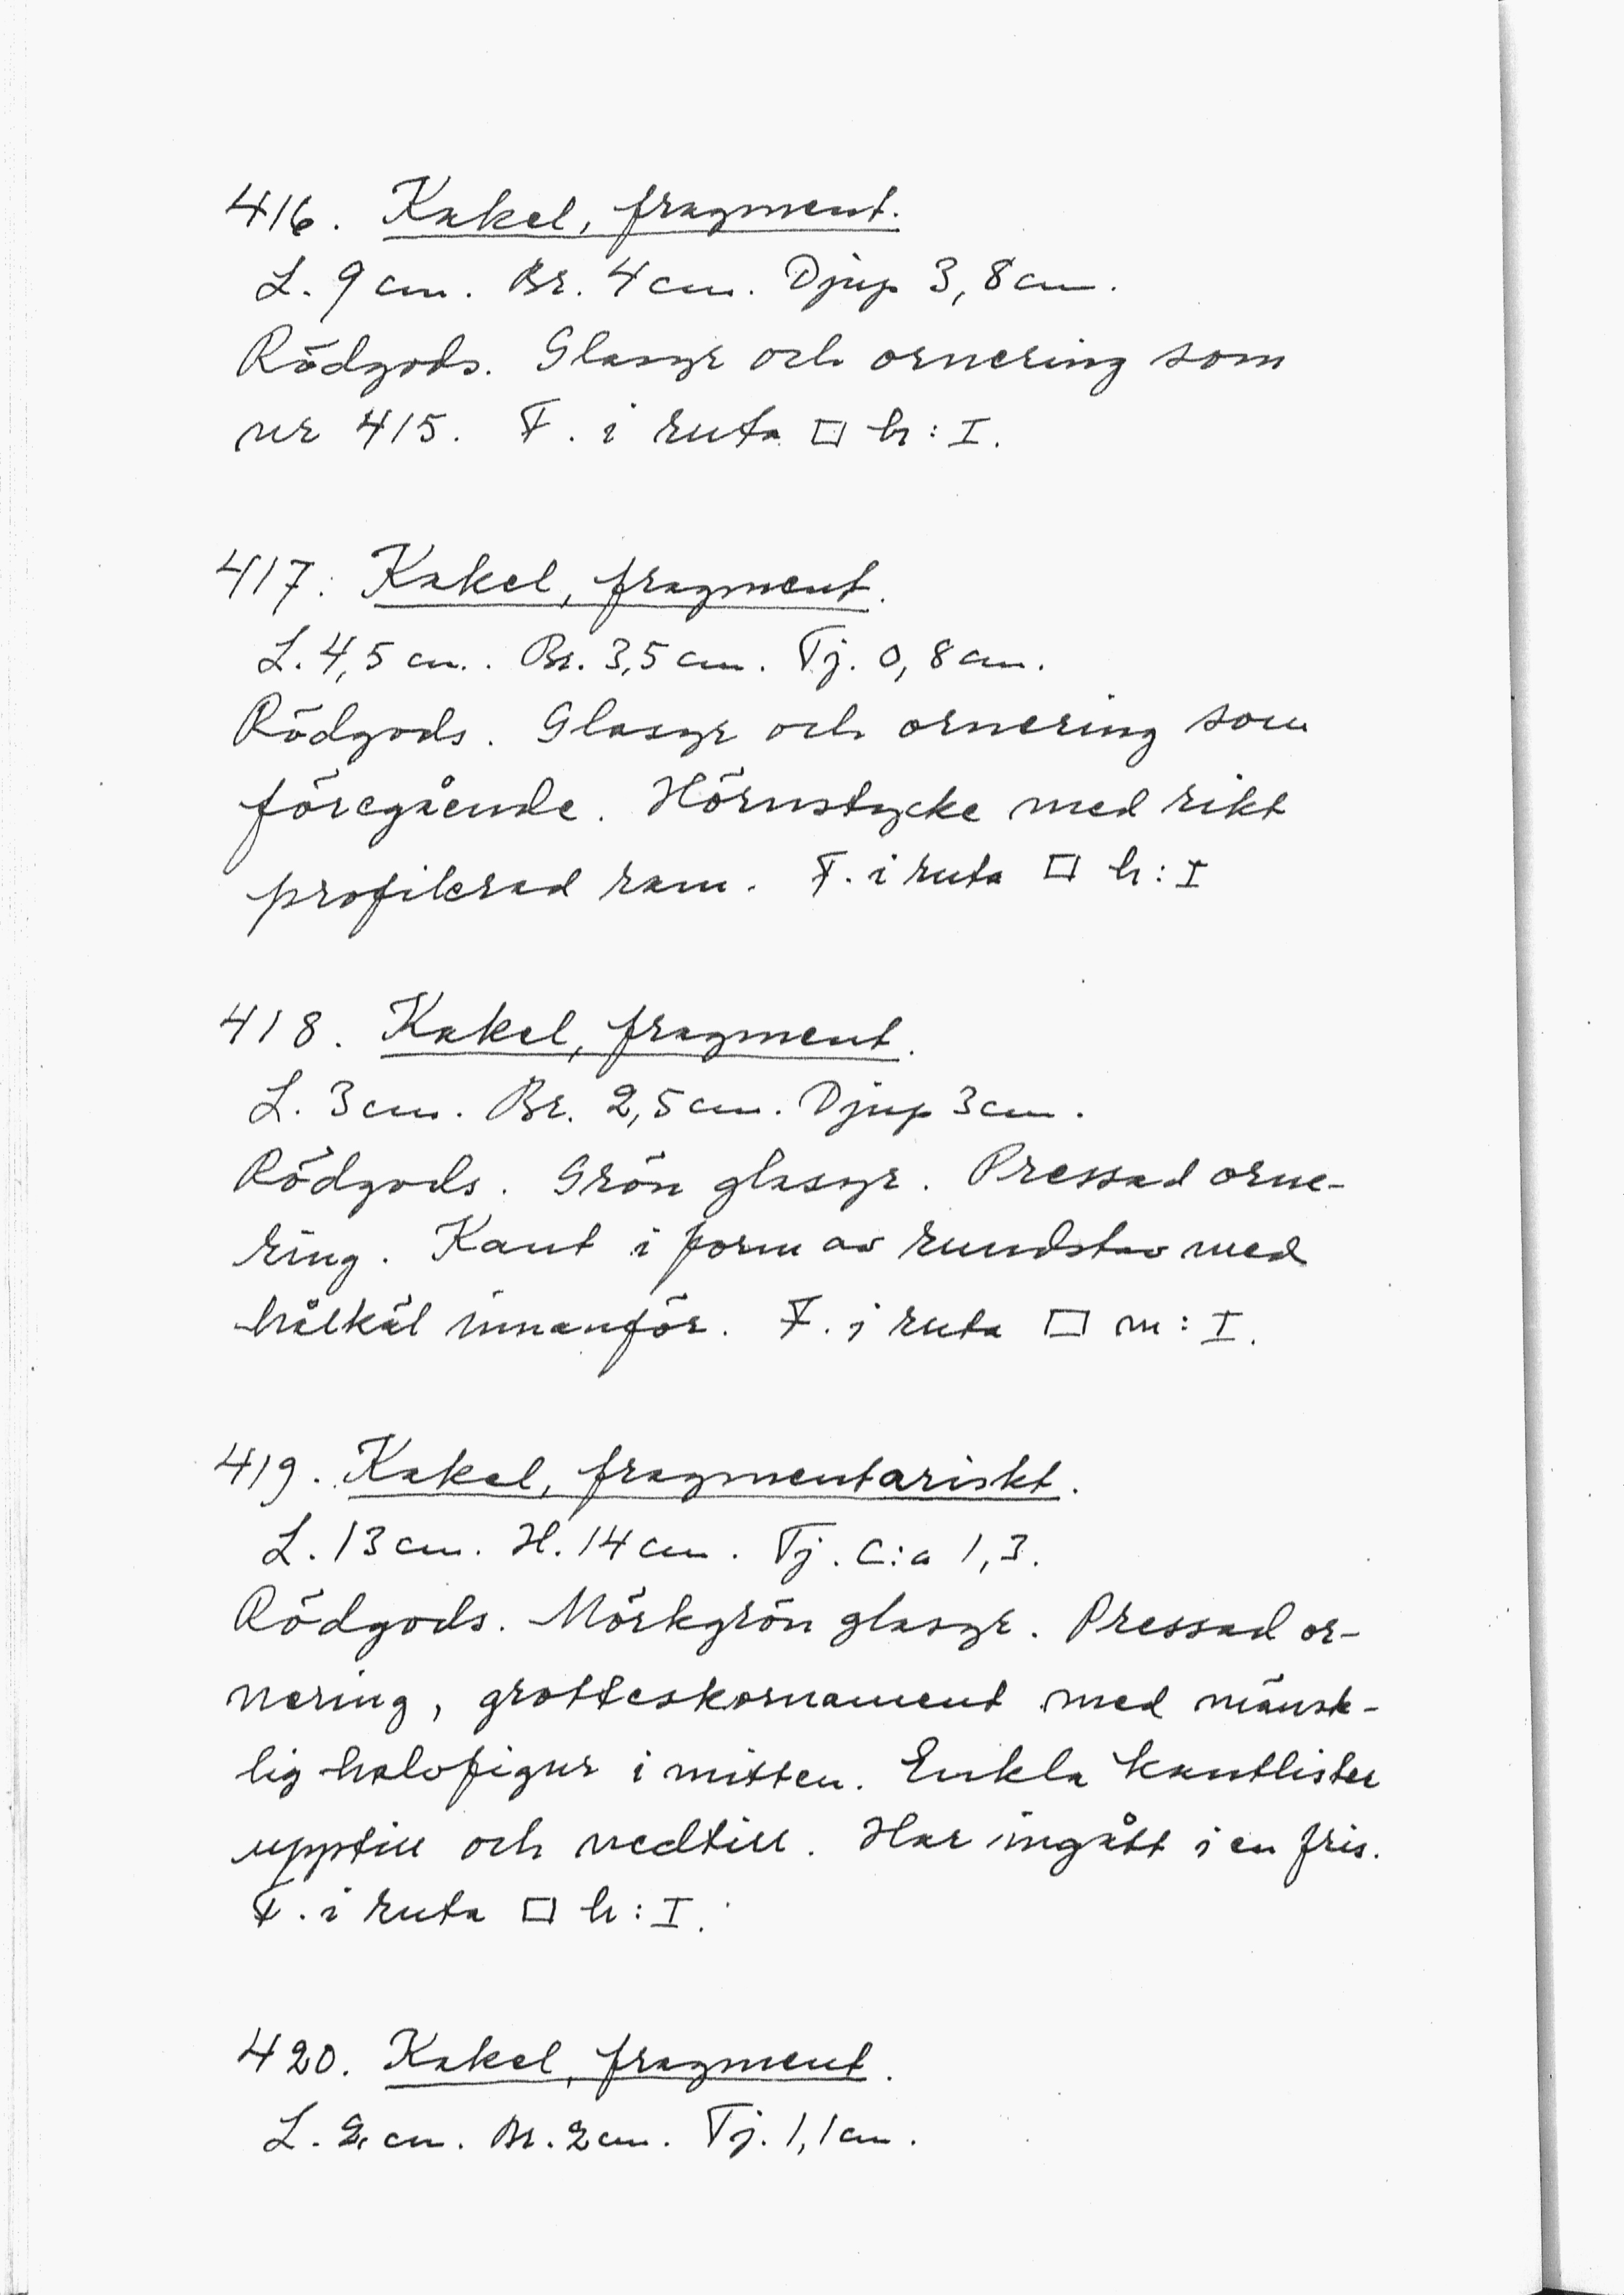 416. Kakel, fragment.
L. 9 cm. Br. 4 cm. Djup 3,8 cm.
Rödgods. Glasyr och ornering som
nr 415. F. i ruta □ h: I.
417. Kakel, fragment.
L. 4,5 cm. Br. 3,5 cm. Tj. 0,8 cm.
Rödgods. Glasyr och ornering som
föregående. Hörnstycke med rikt
profilerad ram. F. i ruta □ h: I
418. Kakel, fragment.
L. 3 cm. Br. 2,5 cm. Djup 3 cm.
Rödgods. Grön glasyr. Pressad orne-
ring. Kant i form av rundstav med
hålkäl innanför. F. i ruta □ m: I.
419. Kakel, fragmentariskt.
L. 13 cm. H. 14 cm. Tj. C:a 1,3.
Rödgods. Mörkgrön glasyr. Pressad or-
nering, grotteskornament med mänsk-
lig halvfigur i mitten. Enkla kantlister
upptill och nedtill. Har ingått i en fris.
F. i ruta □ h: I.
420. Kakel, fragment.
L. 2 cm. Br. 2 cm. Tj. 1,1 cm.